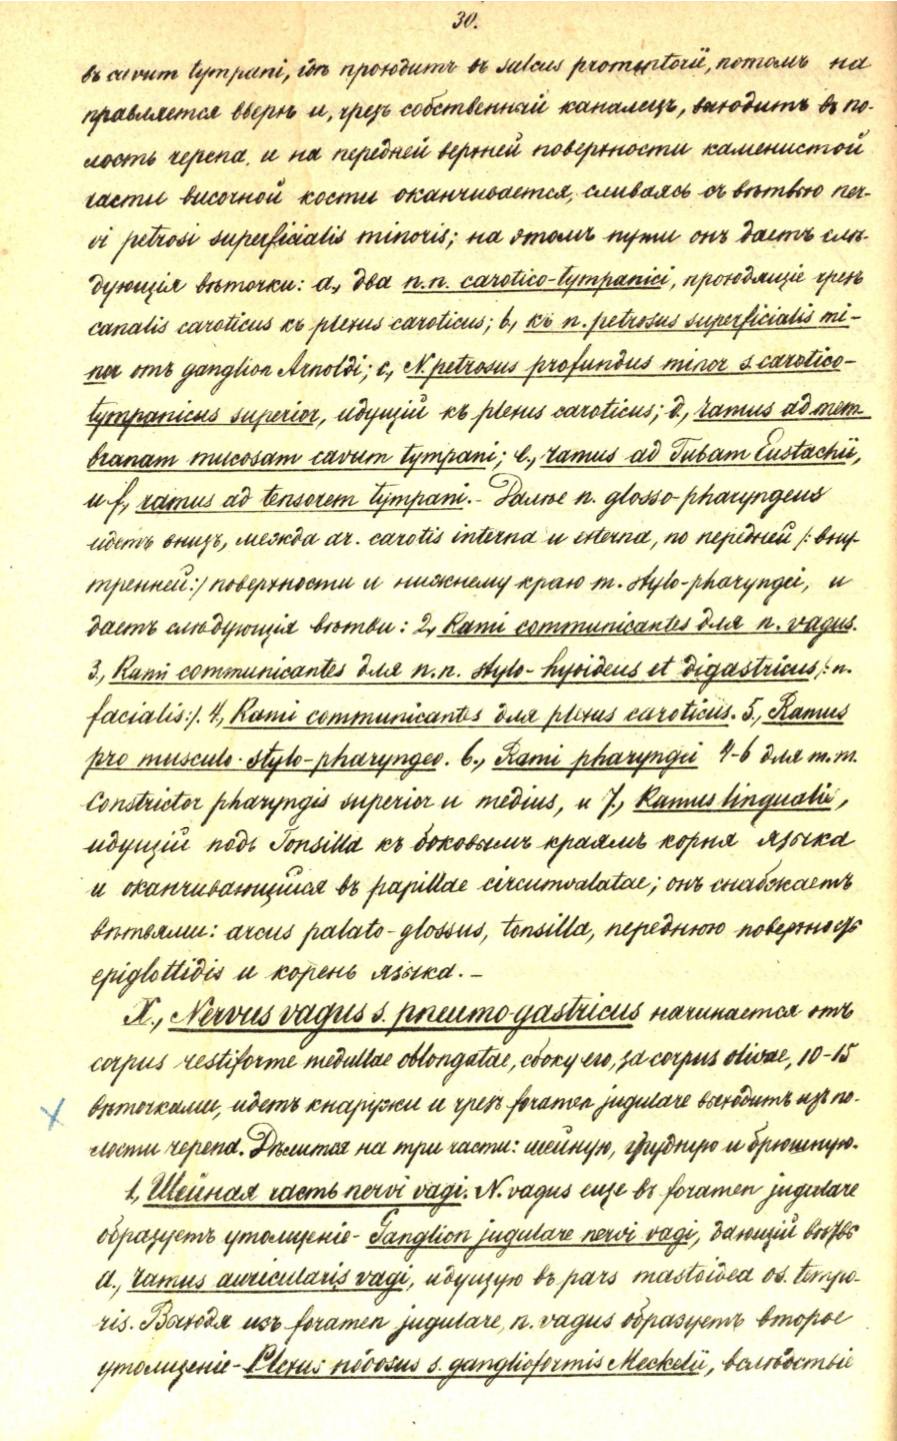 30.
въ cavum tympani, гдѣ проходитъ въ sulcus promontorii, потомъ на
правляется вверхъ и, чрезъ собственный каналецъ, выходитъ въ по-
лость черепа, и на передней верхней поверхности каменистой
части височной кости оканчивается, сливаясь съ вѣтвью ner-
vi petrosi superficialis minoris; на этомъ пути онъ даетъ слѣ-
дующія вѣточки: a, два n.n. carotico-tympanici, проходящіе чрезъ
canalis caroticus къ plexus caroticus; b, къ n. petrosus superficialis mi-
nor отъ ganglion Arnoldi; c, N. petrosus profundus minor s. carotico-
tympanicus superior, идущій къ plexus caroticus; d, ramus ad mem
branam mucosam cavum tympani; e, ramus ad Tubam Eustachii,
и f, ramus ad tensorem tympani.- Далѣе n. glosso-pharyngeus
идетъ внизъ, между ar. carotis interna и externa, по передней /:вну-
тренней:/ поверхности и нижнему краю m. stylo-pharyngei, и
даетъ слѣдующія вѣтви: 2, Rami communicantes для n. vagus.
3, Rami communicantes для n.n. stylo-hyoideus et digastricus /:n.
facialis:/. 4, Rami communicantes для plexus caroticus. 5, Ramus
pro musculo-stylo-pharyngeo. 6., Rami pharyngei 4-6 для m.m.
Constrictor pharyngis superior и medius, и 7, Ramus lingualis,
идущій подъ Tonsilla къ боковымъ краямъ корня языка
и оканчивающійся въ papillae circumvalatae; онъ снабжаетъ
вѣтвями: arcus palato-glossus, tonsilla, переднюю поверхность
epiglottidis и корень языка.-
X., Nervus vagus s. pneumo-gastricus начинается отъ
corpus restiforme medullae oblongatae, сбоку его, за corpus olivae, 10-15
вѣточками, идетъ кнаружи и чрезъ foramen jugulare выходитъ изъ по-
лости черепа. Дѣлится на три части: шейную, грудную и брюшную.
1, Шейная часть nervi vagi. N. vagus еще въ foramen jugulare
образуетъ утолщеніе- Ganglion jugulare nervi vagi, дающій вѣтвь
a., ramus auricularis vagi, идущую въ pars mastoidea os. tempo-
ris. Выходя изъ foramen jugulare, n. vagus образуетъ второе
утолщеніе- Plexus nodosus s. ganglioformis Meckelii, вслѣдствіе